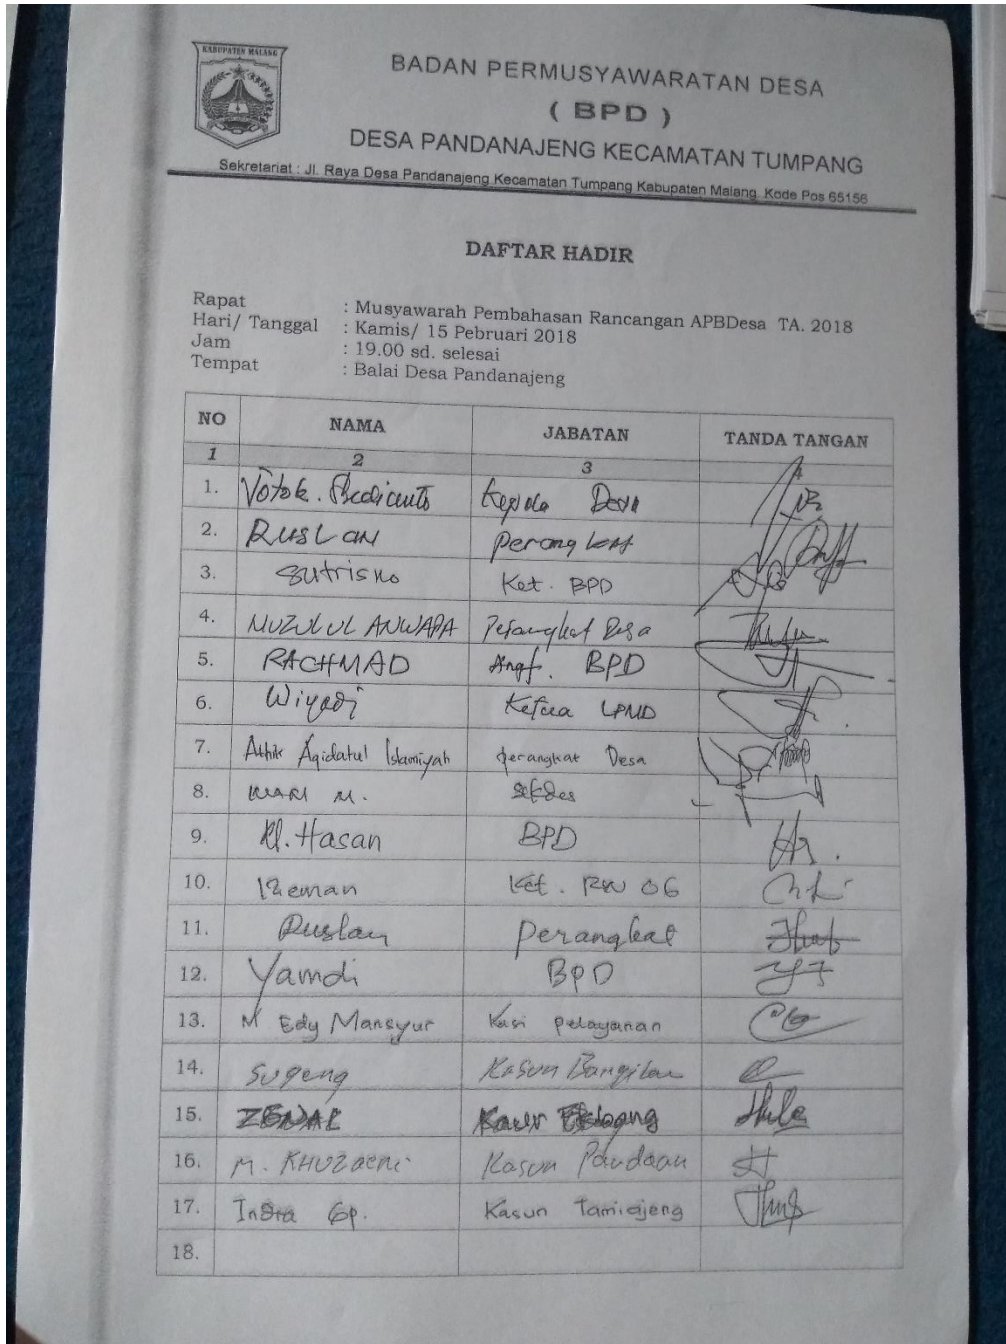 KABUPATEN MALANG
BADAN PERMUSYAWARATAN DESA
( BPD )
DESA PANDANAJENG KECAMATAN TUMPANG
Sekretariat : Jl. Raya Desa Pandanajeng Kecamatan Tumpang Kabupaten Malang. Kode Pos 65156
DAFTAR HADIR
Rapat : Musyawarah Pembahasan Rancangan APBDesa TA. 2018
Hari/ Tanggal : Kamis/ 15 Pebruari 2018
Jam : 19.00 sd. selesai
Tempat : Balai Desa Pandanajeng
NO NAMA JABATAN TANDA TANGAN
1 2 3 4
1. Kepala Desa
2. RUSLAN Perangkat
3. Sutrisno Ket. BPD
4. NUZULUL ANWARA Perangkat Desa
5. RACHMAD Angt. BPD
6. Wiyadi Ketua LPMD
7. Aqidatul Islamiyah perangkat Desa
8. M. Sekdes
9. Hasan BPD
10. Ket. RW 06
11. Ruslan perangkat
12. Yamdi BPD
13. M Edy Mansyur Kasi pelayanan
14. Sugeng Kasun Bangilan
15. ZENAL
16. M. KHUZAENI Kasun Pandaan
17. Indra Gp. Kasun Tamiajeng
18.